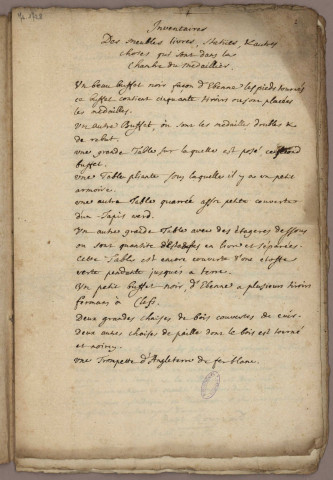 Inventaires
Des meubles livres, statues, & autres
choses qui sont dans la
Chambre du Medaillier.
Un beau buffet noir façon d'Ebenne les pieds tournés
ce buffet contient cinquante tiroirs ou sont placées
les medailles.
Un autre Buffet, ou sont les medailles doubles &
de rebut.
une grande Table sur laquelle est posé
buffet.
une Table pliante sous laquelle il y a un petit
armoire.
une autre Table quarrée assez petite couverte
d'un Tapis verd.
Un autre grande Table avec des étageres dessous
ou sont quantité en livre et séparées.
Cette Table est encore couverte d'une étoffe
verte pendante jusques a terre.
Un petit buffet noir, d'Ebenne a plusieurs tiroirs
fermans à Clefs.
Deux grandes chaises de bois couvertes de cuir.
deux autres chaises de paille dont le bois est tourné
et noircy.
une Trompette d'Angleterre de fer blanc.